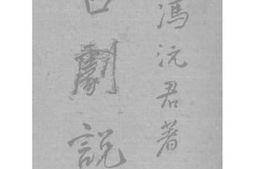 馮沅君著
劇說